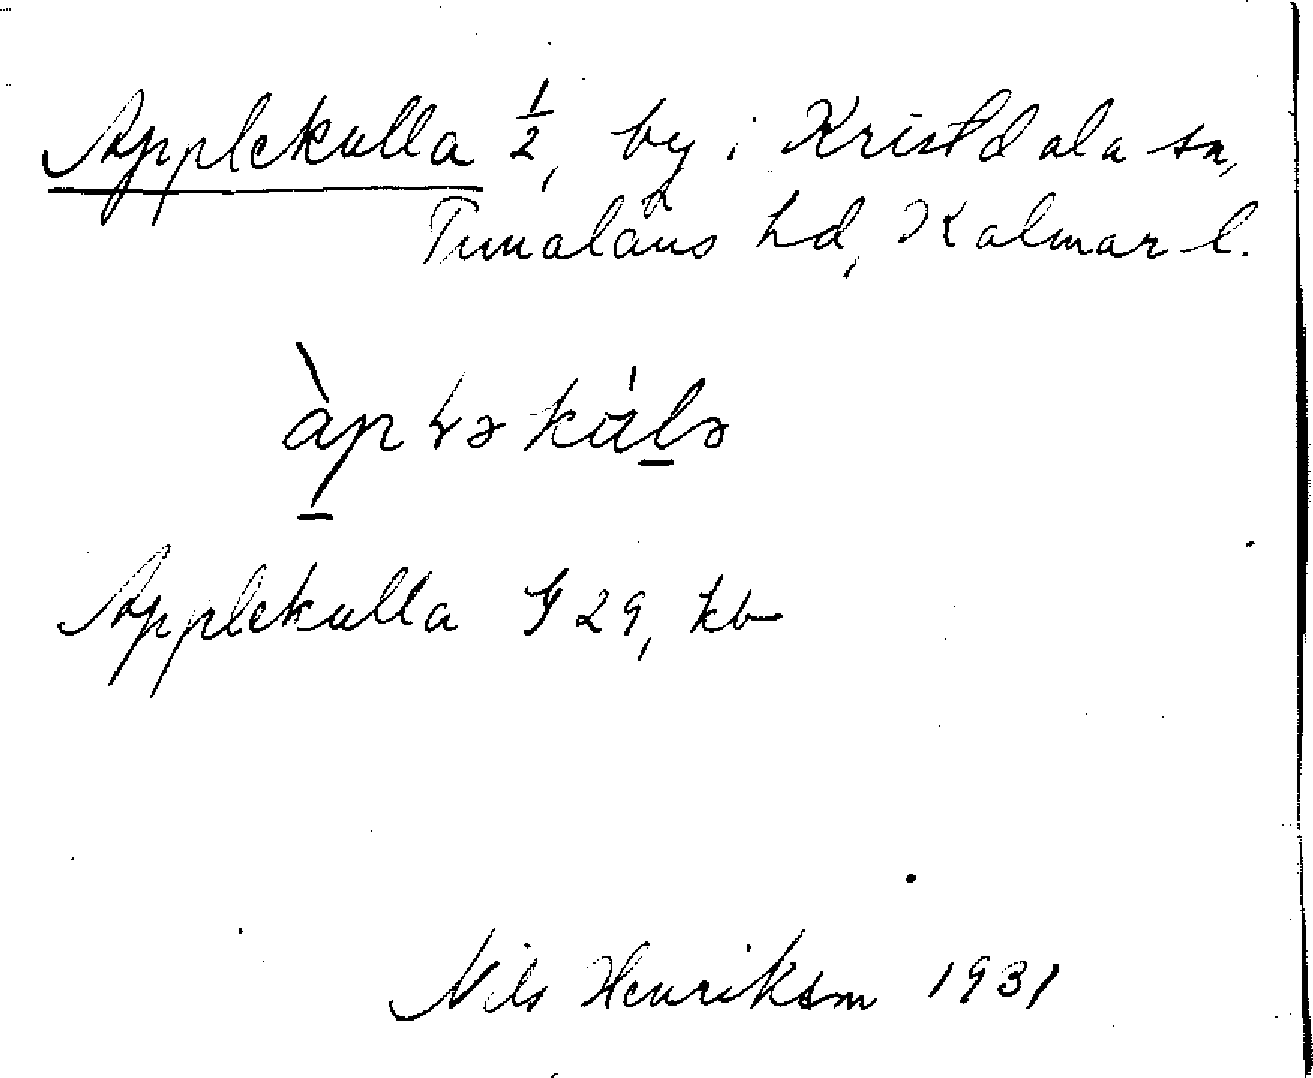 Applekulla 1/2, by i Kristdala sn,
Tunaläns hd, Kalmar l.
àpləkúlə
Applekulla G 29, kb
Nils Henrikson 1931